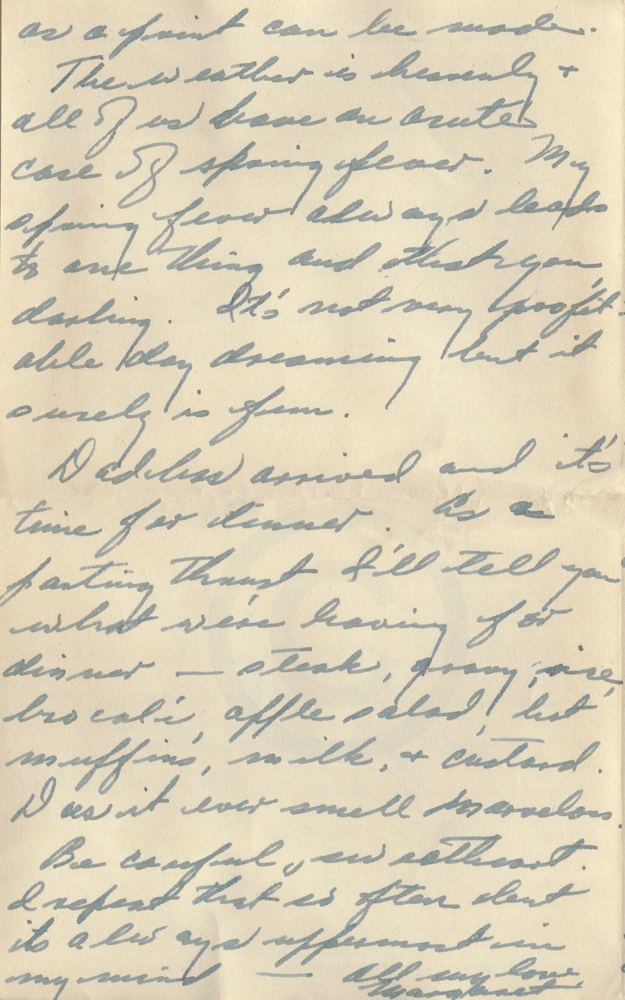 as a point can be made.
The weather is heavenly +
all of us have an acute
case of spring fever. My
spring fever always leads
to one thing and that's you,
darling. It's not very profit-
able day dreaming but it
surely is fun.
Dad has arrived and it's
time for dinner. As a
parting thrust I'll tell you
what we're having for
dinner — steak, gravy, rice,
brocali, apple salad, hot
muffins, milk, + custard.
Does it ever smell marvelous.
Be careful, sweetheart.
I repeat that so often but
its always uppermost in
my mind — All my love,
Margaret